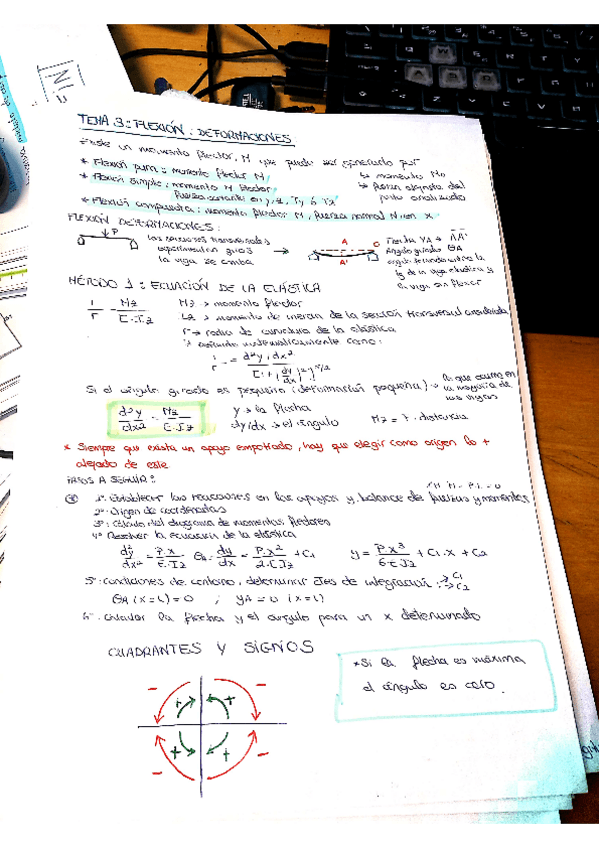 TEMA 3: FLEXIÓN: DEFORMACIONES.
Existe un momento flector, M que puede ser generado por
* Flexión pura: momento flector M
↳ momento M₀
* Flexión simple: momento M flector
fuerza cortante en y, z, Ty ó Tz
↳ fuerza alejada del punto analizado
* Flexión compuesta: momento flector M, fuerza normal N en x.
FLEXIÓN DEFORMACIONES:
P
las secciones transversales
experimentan giros
la viga se comba
A
O
A'
Flecha YA → AA'
ángulo girado θA
ángulo formado entre la
tg de la viga elástica y
la viga sin flexar
MÉTODO 1: ECUACIÓN DE LA ELÁSTICA
1/r = Mz/E·Iz
Mz → momento flector
Iz → momento de inercia de la sección transversal considerada
r → radio de curvatura de la elástica
definido matemáticamente como:
1/r = d²y/dx² / [1+(dy/dx)²]^3/2
Si el ángulo girado es pequeño (deformación pequeña) → lo que ocurre en
la mayoría de
las vigas
d²y/dx² = Mz/E·Iz
y → la flecha
dy/dx → el ángulo
Mz = F · distancia
* Siempre que exista un apoyo empotrado, hay que elegir como origen lo +
alejado de este
PASOS A SEGUIR:
1º: Establecer las reacciones en los apoyos y balance de fuerzas y momentos
2º: Origen de coordenadas
3º: Cálculo del diagrama de momentos flectores
4º Resolver la ecuación de la elástica
d²y/dx² = P·x/E·Iz θA = dy/dx = P·x²/2·E·Iz + C1 y = P·x³/6·E·Iz + C1·x + C2
5º: condiciones de contorno, determinar ctes de integración: → C1 → C2
θA (x=L) = 0 ; yA = 0 (x=L)
6º: calcular la flecha y el ángulo para un x determinado
CUADRANTES Y SIGNOS
* Si la flecha es máxima
el ángulo es cero.
- + + -
- + + -